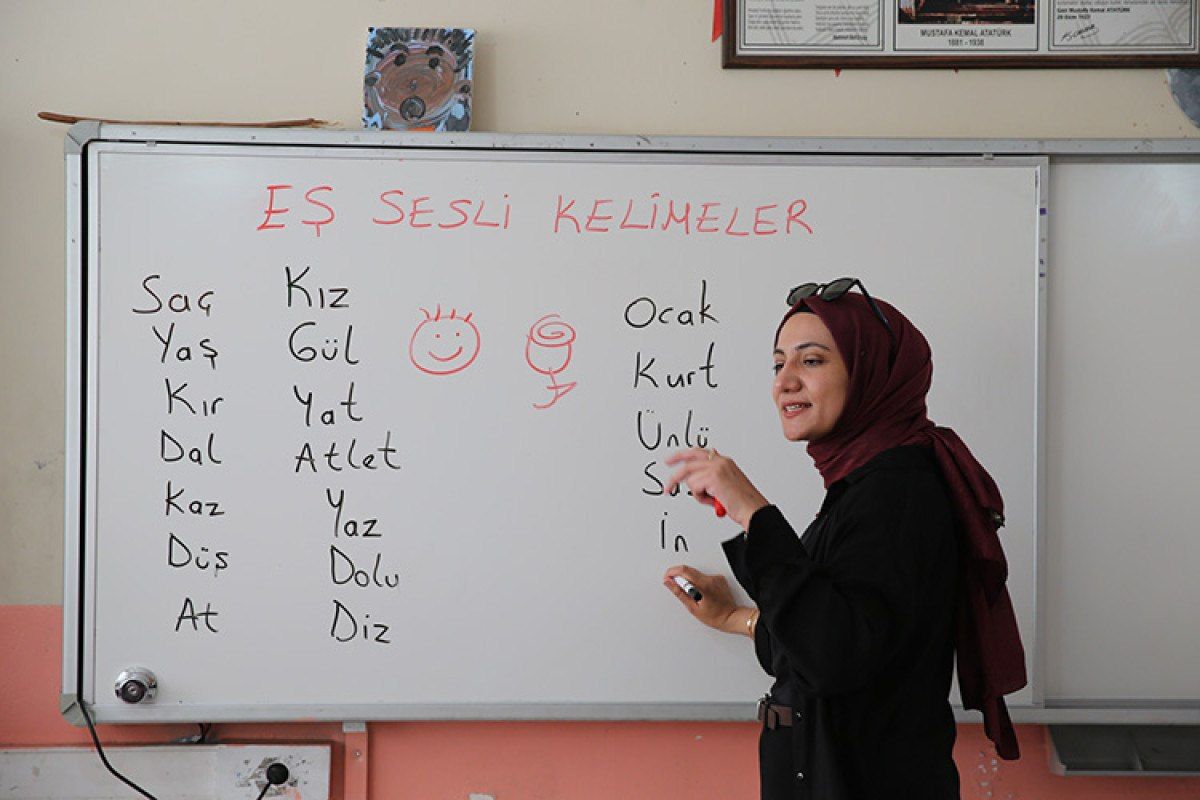 MUSTAFA KEMAL ATATÜRK
1881 - 1938
EŞ SESLİ KELİMELER
Saç
Yaş
Kır
Dal
Kaz
Düş
At
Kız
Gül
Yat
Atlet
Yaz
Dolu
Diz
Ocak
Kurt
Ünlü
İn